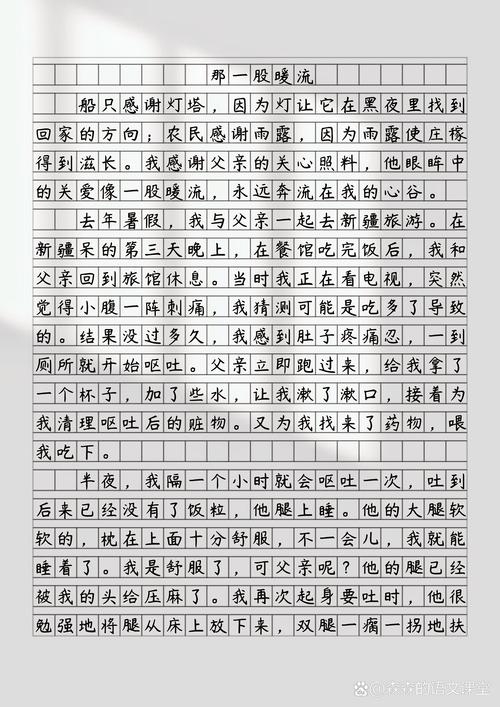 那一股暖流
船只感谢灯塔，因为灯让它在黑夜里找到
回家的方向；农民感谢雨露，因为雨露使庄稼
得到滋长。我感谢父亲的关心照料，他眼眸中
的关爱像一股暖流，永远奔流在我的心谷。
去年暑假，我与父亲一起去新疆旅游。在
新疆呆的第三天晚上，在餐馆吃完饭后，我和
父亲回到旅馆休息。当时我正在看电视，突然
觉得小腹一阵刺痛，我猜测可能是吃多了导致
的。结果没过多久，我感到肚子疼痛忍，一到
厕所就开始呕吐。父亲立即跑过来，给我拿了
一个杯子，加了些水，让我漱了漱口，接着为
我清理呕吐后的脏物。又为我找来了药物，喂
我吃下。
半夜，我隔一个小时就会呕吐一次，吐到
后来已经没有了饭粒，他腿上睡。他的大腿软
软的，枕在上面十分舒服，不一会儿，我就能
睡着了。我是舒服了，可父亲呢？他的腿已经
被我的头给压麻了。我再次起身要吐时，他很
勉强地将腿从床上放下来，双腿一瘸一拐地扶
@森森的语文课堂